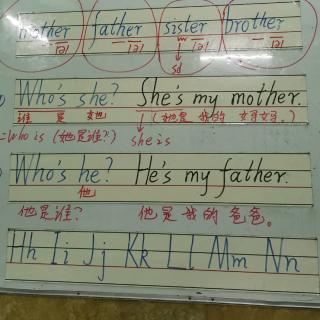 mother father sister brother
/ə/ /ə/ /ə/ /ə/
sd
Who's she? She's my mother.
谁 是 她 (她是 我的 妈妈。)
=Who is (她是谁?) she is
Who's he? He's my father.
他
他是谁? 他是我的爸爸。
Hh Ii Jj Kk Ll Mm Nn